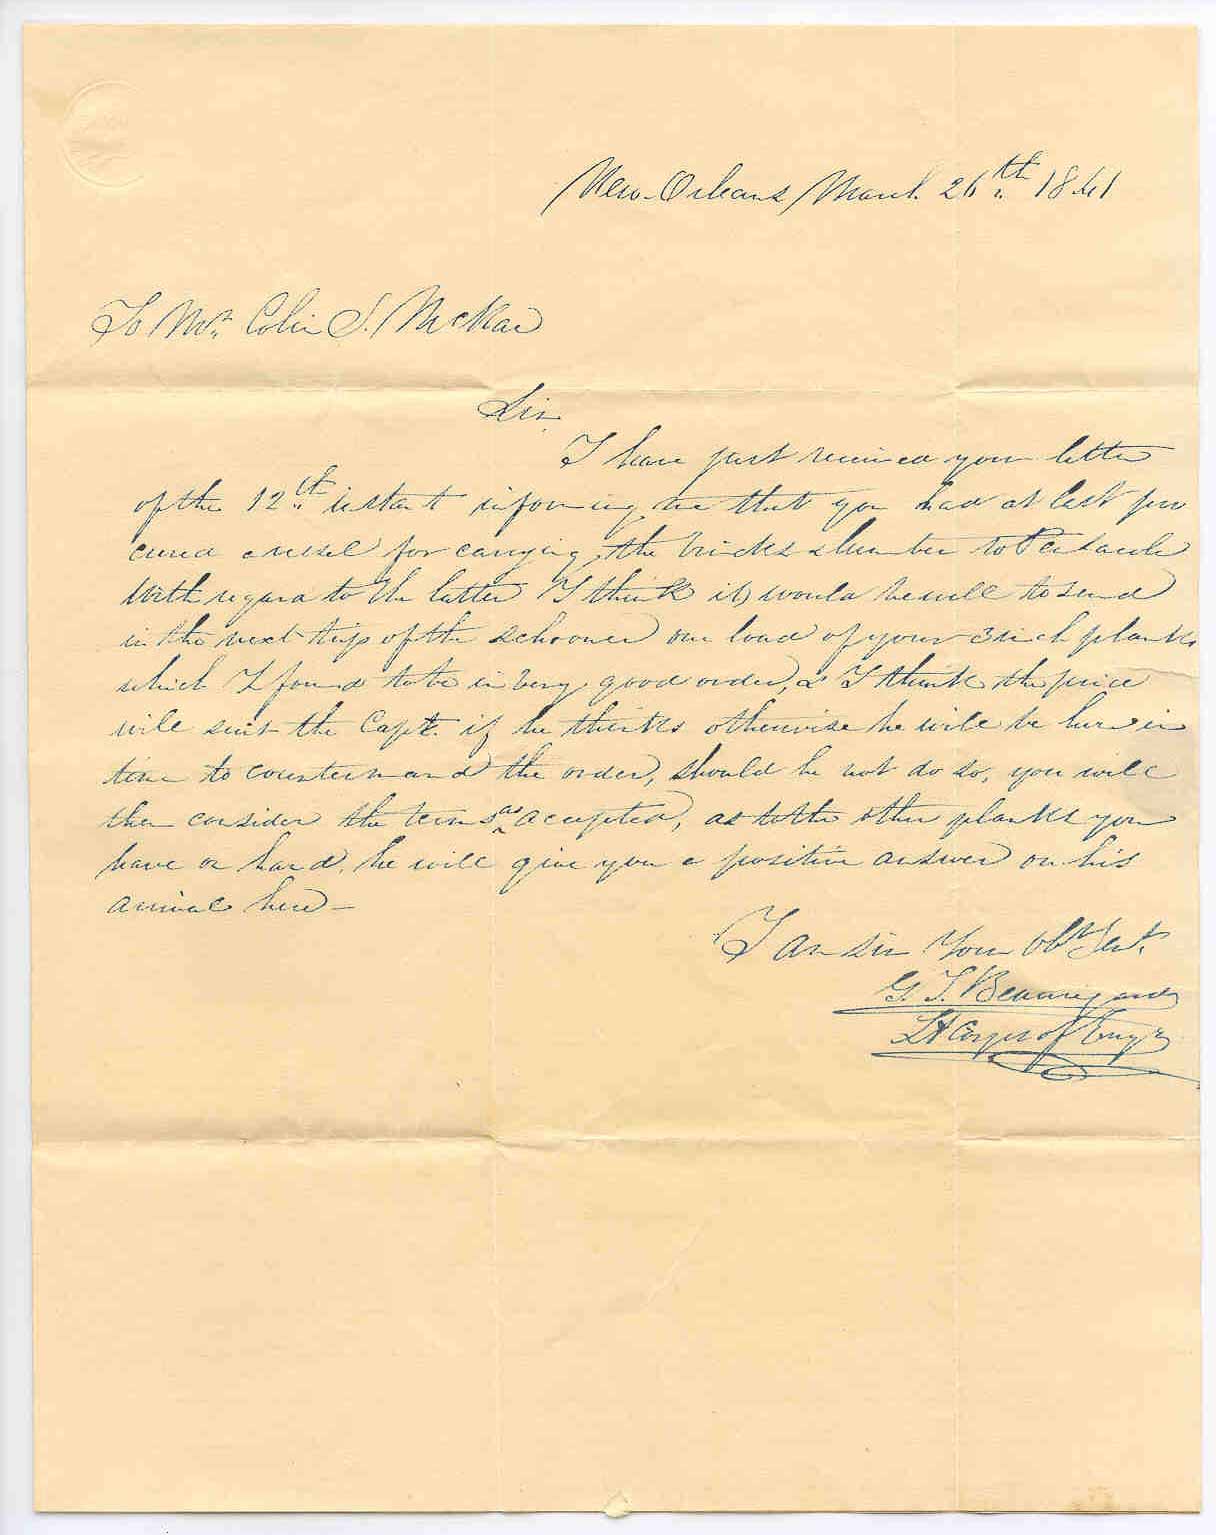 New-Orleans March 26th 1841
To Mr. Colin J. McRae
Sir
I have just received your letter
of the 12th instant informing me that you had at last pro
cured a vessel for carrying the bricks & lumber to Pensacola
With regard to the latter I think it would be well to send
in the next trip of the schooner one load of your 3 inch planks
which I found to be in very good order, & I think the price
will suit the Capt. if he thinks otherwise he will be here in
time to countermand the order, should he not do so, you will
then consider the terms as accepted, as to the other planks you
have on hand, he will give you a positive answer on his
arrival here—
I am Sir Your Obt Servt.
G. T. Beauregard
Lt Corps of Engrs